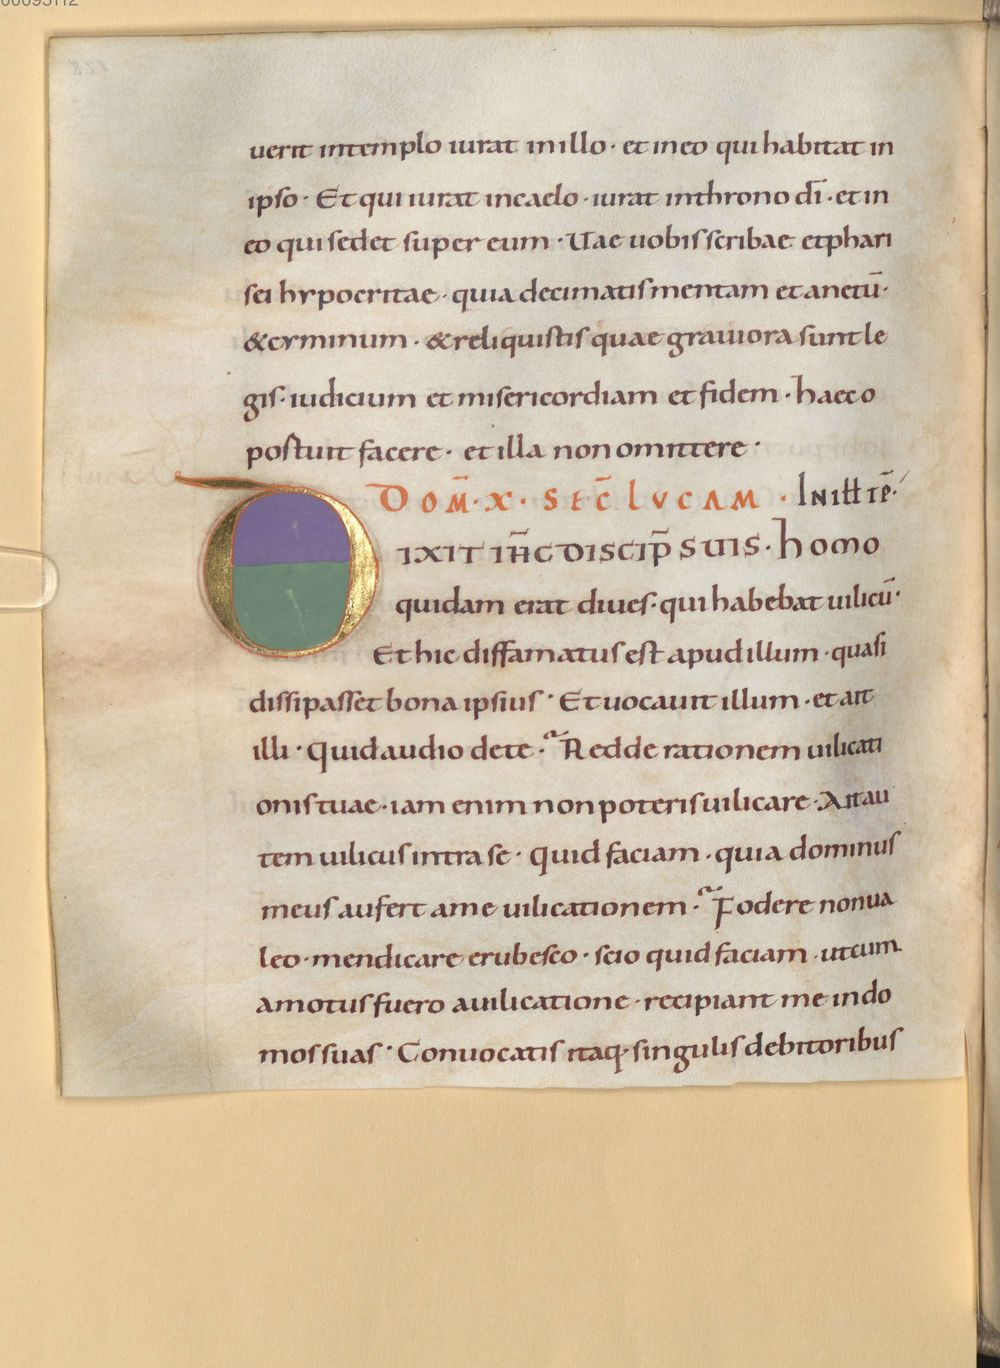 uerit intemplo iurat inillo · et ineo qui habitat in
ipso · Et qui iurat incaelo · iurat inthrono dī · et in
eo qui sedet super eum · Uae uobis scribae etphari
sei hypocritae · quia decimatis mentam et anetū ·
&cyminum · &reliquistis quae grauiora sunt le
gis · iudicium et misericordiam et fidem · haec o
postuit facere · et illa non omittere ·
DOM̄ · X · SEC̄ LVCAM · IN ILL TP̄ ·
DIXIT IH̄C DISCIP̄ SUIS · homo
quidam erat diues · qui habebat uilicū ·
Et hic diffamatus est apud illum · quasi
dissipasset bona ipsius · Et uocauit illum · et ait
illi · quid audio dete · Redde rationem uilicati
onis tuae · iam enim non poteris uilicare · Ait au
tem uilicus intra se · quid faciam · quia dominus
meus aufert ame uilicationem · Fodere non ua
leo · mendicare erubesco · scio quid faciam · ut cum
amotus fuero auilicatione · recipiant me in do
mos suas · Conuocatis itaq · singulis debitoribus